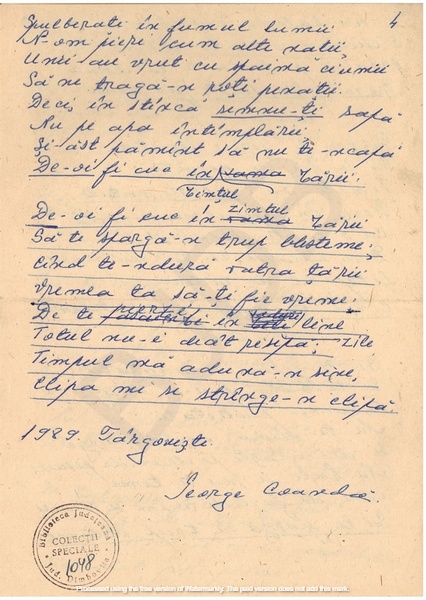 4
Spulberați în fumul lumii
N-om pieri cum alte nații,
Unii au vrut cu spaima ciumii
Să ne tragă-n roți penații.
Deci, în stîncă semne-ți sapă
Nu pe apa întîmplării,
Și-ast pămînt să nu te-ncapă
De-oi fi cuc în rana țării.
Timtul
zimtul
De-oi fi cuc în rana țării
Să te spargă-n trup blesteme;
Cînd te-ndură vatra țării
Vremea ta să-ți fie vreme;
De te în bine
Totul nu-i decît risipă; zile
Timpul mă adună-n sine,
Clipa mi se strînge-n clipă.
1989. Târgoviște.
George Coandă.
Biblioteca Județeană
COLECȚII
SPECIALE
1048
Jud. Dîmbovița
Processed using the free version of Watermarkly. The paid version does not add this mark.